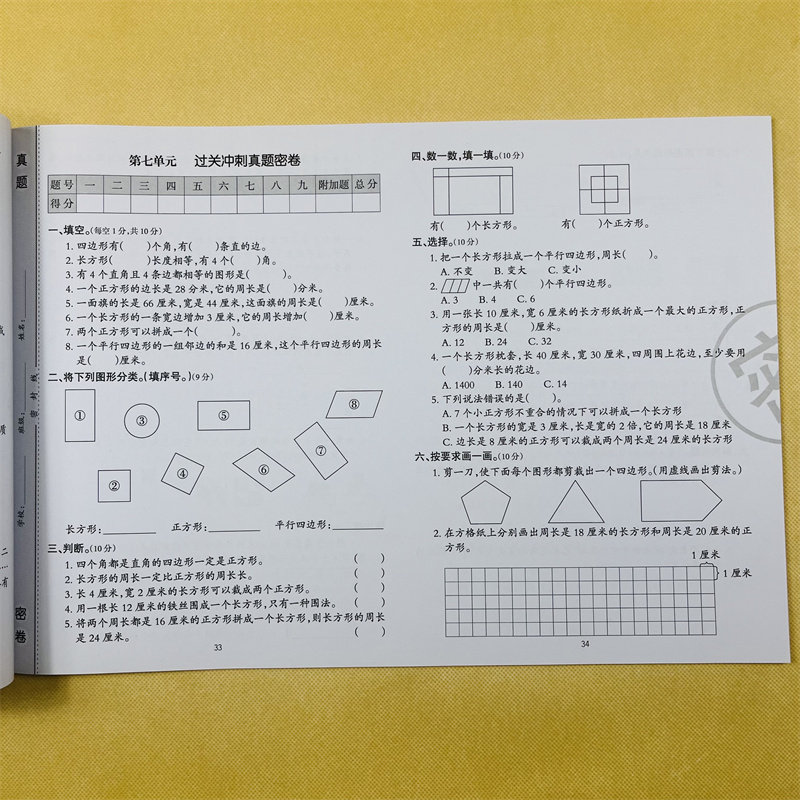 真
题
姓名：
班级：
学校：
密 封 线
密
卷
质
二
…
有
第七单元 过关冲刺真题密卷
题号 一 二 三 四 五 六 七 八 九 附加题 总分
得分
一、填空。(每空1分,共10分)
1. 四边形有( )个角,有( )条直的边。
2. 长方形( )长度相等,有4个( )角。
3. 有4个直角且4条边都相等的图形是( )。
4. 一个正方形的边长是28分米,它的周长是( )分米。
5. 一面旗的长是66厘米,宽是44厘米,这面旗的周长是( )厘米。
6. 一个长方形的一条宽边增加3厘米,它的周长增加( )厘米。
7. 两个正方形可以拼成一个( )。
8. 一个平行四边形的一组邻边的和是16厘米,这个平行四边形的周长
是( )厘米。
二、将下列图形分类。(填序号。)(9分)
① ③ ⑤ ⑧
② ④ ⑥ ⑦
长方形: 正方形: 平行四边形:
三、判断。(10分)
1. 四个角都是直角的四边形一定是正方形。 ( )
2. 长方形的周长一定比正方形的周长长。 ( )
3. 长4厘米,宽2厘米的长方形可以裁成两个正方形。 ( )
4. 用一根长12厘米的铁丝围成一个长方形,只有一种围法。 ( )
5. 将两个周长都是16厘米的正方形拼成一个长方形,则长方形的周长
是24厘米。 ( )
33
四、数一数,填一填。(10分)
有( )个长方形。 有( )个正方形。
五、选择。(10分)
1. 把一个长方形拉成一个平行四边形,周长( )。
A. 不变 B. 变大 C. 变小
2. 中一共有( )个平行四边形。
A. 3 B. 4 C. 6
3. 用一张长10厘米,宽6厘米的长方形纸折成一个最大的正方形,正
方形的周长是( )厘米。
A. 12 B. 24 C. 32
4. 一个长方形枕套,长40厘米,宽30厘米,四周围上花边,至少要用
( )分米长的花边。
A. 1400 B. 140 C. 14
5. 下列说法错误的是( )。
A. 7个小正方形不重合的情况下可以拼成一个长方形
B. 一个长方形的宽是3厘米,长是宽的2倍,它的周长是18厘米
C. 边长是8厘米的正方形可以裁成两个周长是24厘米的长方形
六、按要求画一画。(10分)
1. 剪一刀,使下面每个图形都剪裁出一个四边形。(用虚线画出剪法。)
2. 在方格纸上分别画出周长是18厘米的长方形和周长是20厘米的正
方形。
1厘米
1厘米
34
密